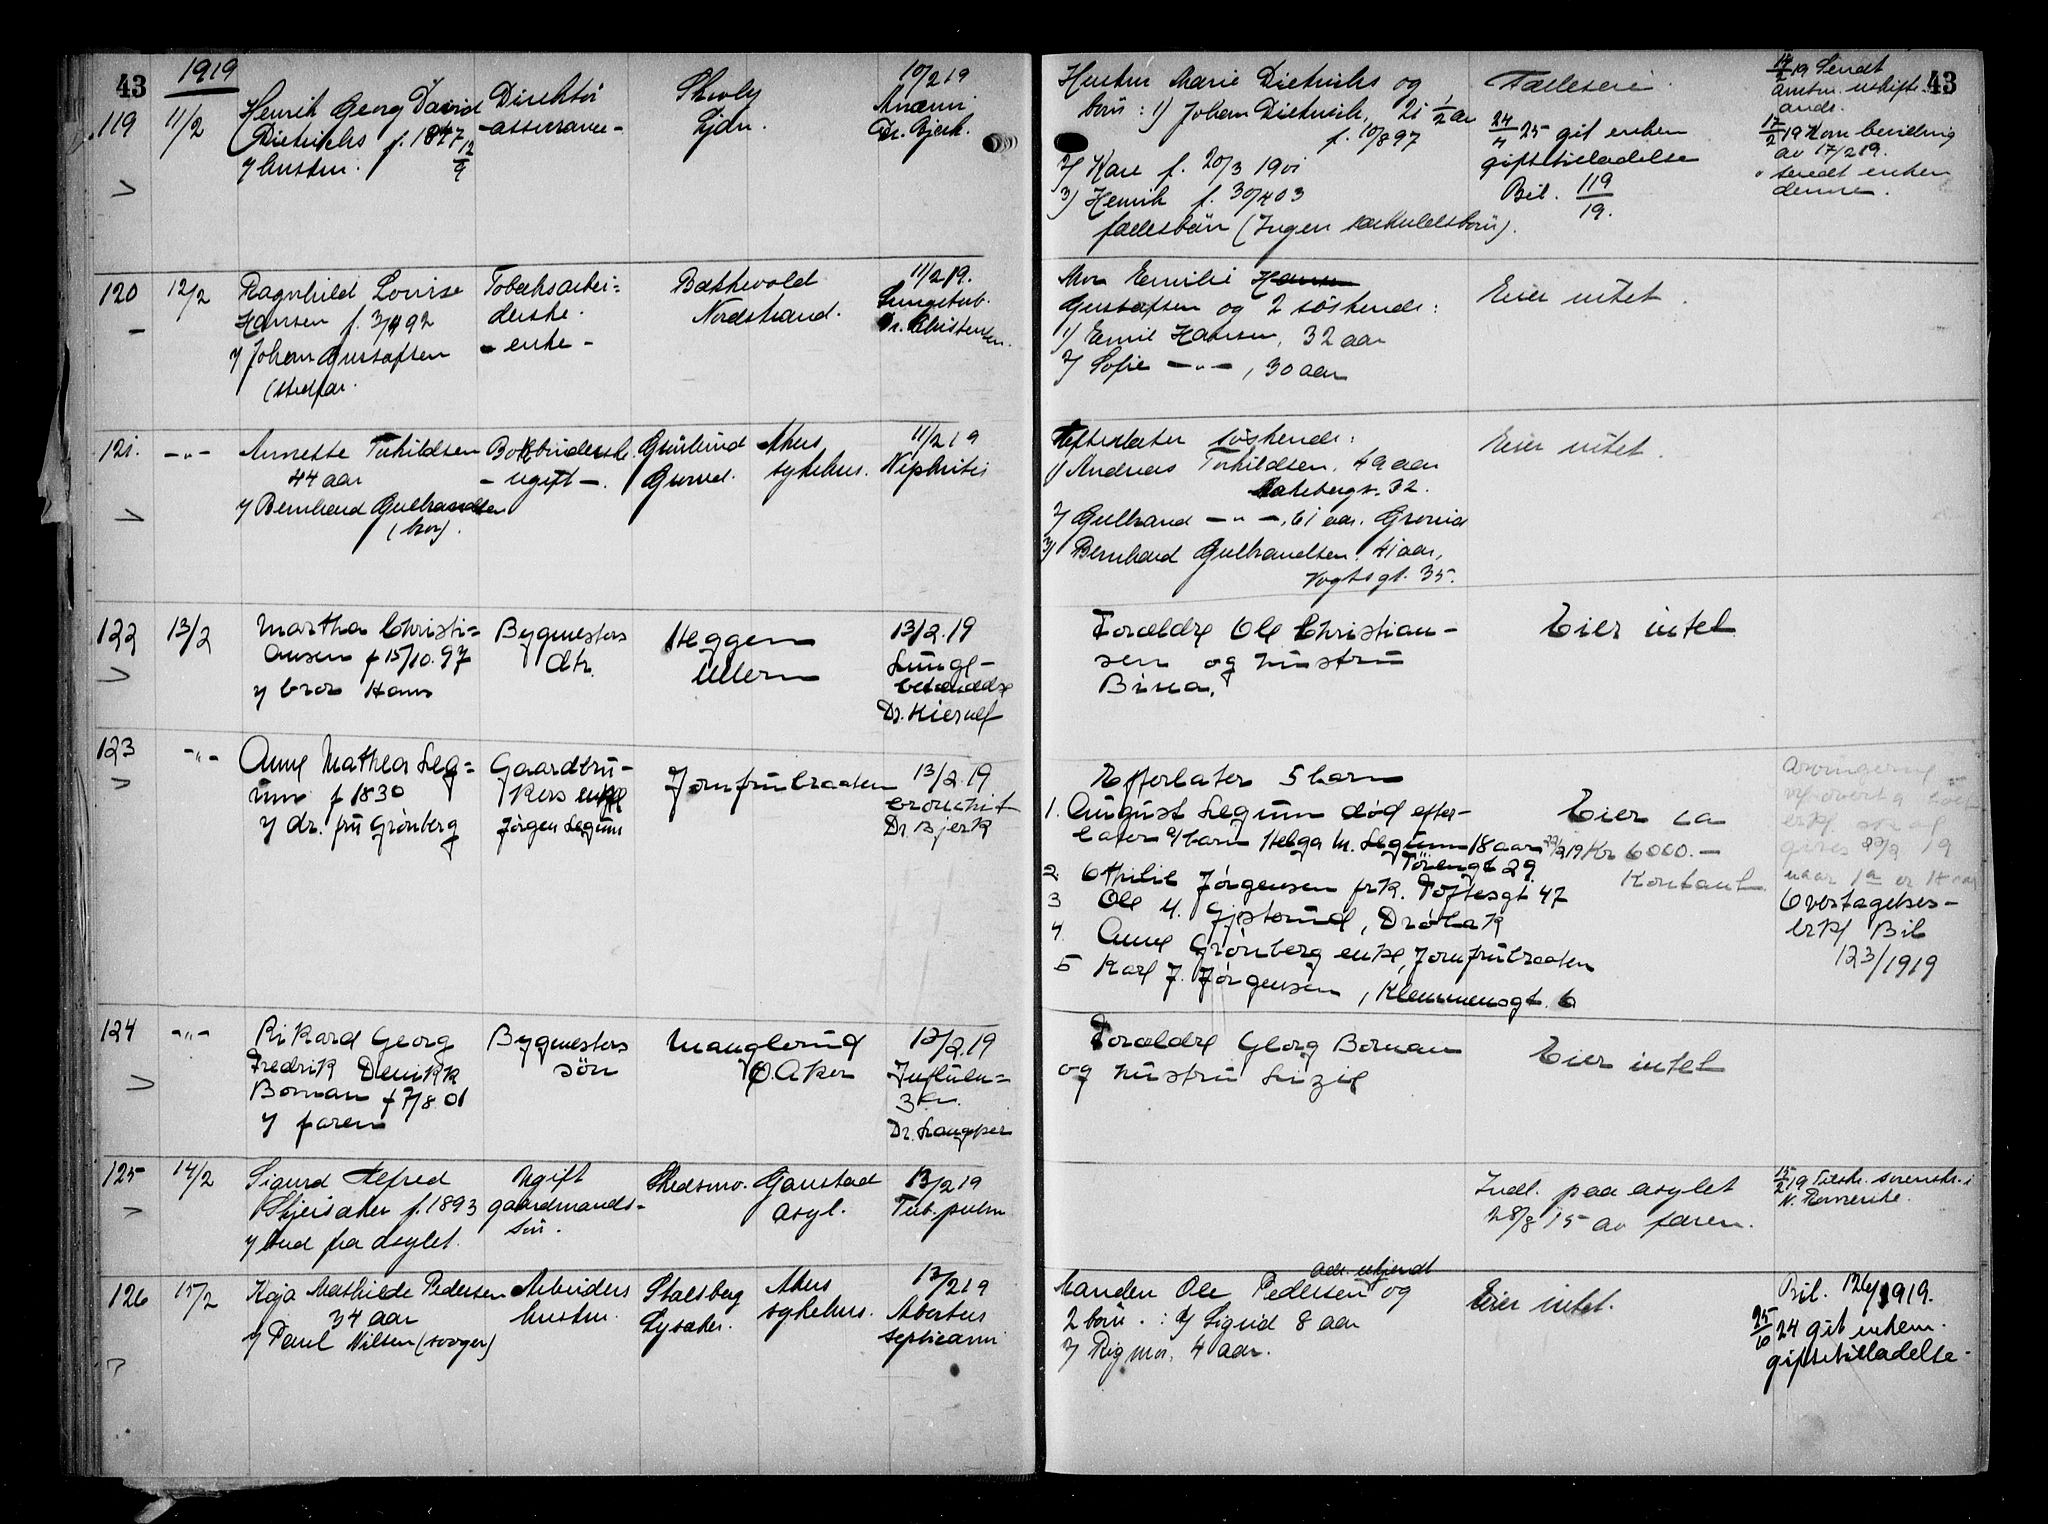 43
1919
119
11/2
Henrik Georg David
Dietrichs f. 1847 12/9
v/ hustru.
Direktör
-assurance-
Skovly
Ljan.
10/2 19
Anæmi
Dr. Bjerk.
Hustru Marie Dietrichs og
börn: 1) Johan Dietrichs, 21 1/2 aar
f. 10/8 97
2) Kare f. 20/3 1901
3) Henrik f. 30/4 03
fællesbörn (Ingen særkuldsbörn).
Fælleseie.
24/4 25 git enken
giftetilladelse
Bil. 119/19.
43
14/2 19 Sendt
amtm. uskifte
ands.
17/2 19 Kom bevilling
av 17/2 19.
sendt enken
denne.
120
12/2
Ragnhild Lovise
Hansen f. 3/4 92
v/ Johan Gustafsen
(stedfar.
Tobaksarbei=
derske.
- enke -
Bækkevold
Nordstrand.
11/2 19.
Lungetub.
Dr. Christensen.
Mor Emilie Hansen
Gustafsen og 2 söskende:
1) Emil Hansen, 32 aar
2) Sofie -"-, 30 aar
Eier intet.
121.
-"-
Annette Torkildsen
44 aar
v/ Bernhard Gulbrandsen
(bror).
Bokbinderske
- ugift -.
Grorud.
Akers
sykehus.
11/2 19
Nephritis
Efterlater söskende:
1) Andreas Torkildsen, 49 aar
32.
2) Gulbrand -"-, 61 aar, Grorud
3) Bernhard Gulbrandsen, 41 aar,
Vogtsgt. 35.
Eier intet.
122
13/2
Martha Christi=
ansen f 15/10.97
v/ bror Hans
Bygmesters
dtr.
Heggen
Ullern
13/2.19
Lunge-
betændelse
Dr. Kierulf
Forældre Ole Christian-
sen og hustru
Bina.
Eier intet
123
-"-
Anne Mathea Leg=
f 1830
v/ dr. fru Grønberg
Gaardbru-
kers enke
Jørgen Legum
Jomfrubraaten
13/2.19
bronchit
Dr. Bjerk
Efterlater 5 barn
1. August Legum død efter-
later 1 barn Helga M. Legum 18 aar 22/2 19
29.
2. Othilie Jørgensen frk. Toftesgt 47
3 Ole H. Gjsterud, Drøbak
4. Anne Grønberg enke, Jomfrubraaten
5 Karl J. Jørgensen, Klemmensgt. 6
Eier ca
Kr 6000.-
Kontant
Arvingerne
vil overta boet
erkl skal
gives 22/2 19
naar 1a er 18 aar
Overtagelses-
erkl Bil
123/1919
124
-"-
Rikard Georg
Fredrik Denikk
Boman f 7/8.01
v/ faren
Bygmesters
sön
Manglerud
Ø. Aker
13/2.19
Influen=
za.
Forældre Georg Boman
og hustru Lizzie
Eier intet
125
14/2
Sigurd Alfred
Skjeisaker f. 1893
v/ bud fra asylet.
Ugift
gaardmands-
sön.
Skedsmo.
Gaustad
asyl.
13/2 19
Tub. pulm
Indl. paa asylet
28/8 15 av faren.
15/2 19 Tilskr. sorenskr. i
N. Romerike.
126
15/2
Kaja Mathilde Pedersen
34 aar
v/ Paul Nilsen (svoger)
Arbeiders
hustru.
Stalsberg
Lysaker.
Akers
sykehus.
13/2 19
Abortus
septicæmi
adr. ukjendt
Manden Ole Pedersen og
2 börn.: 1) Sigrid 8 aar
2) Rigmor, 4 aar.
Eier intet.
Bil. 126/1919.
25/10 24 git enkem.
giftetilladelse.